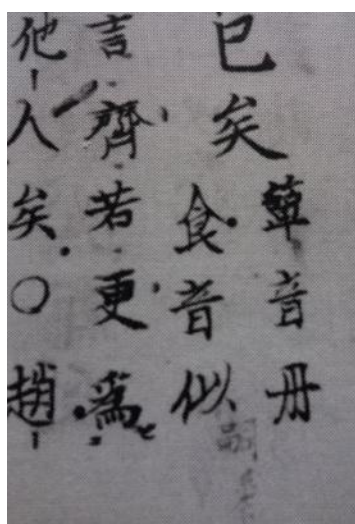 已矣
簞音丹
食音似
言齊若更爲
他人矣○趙